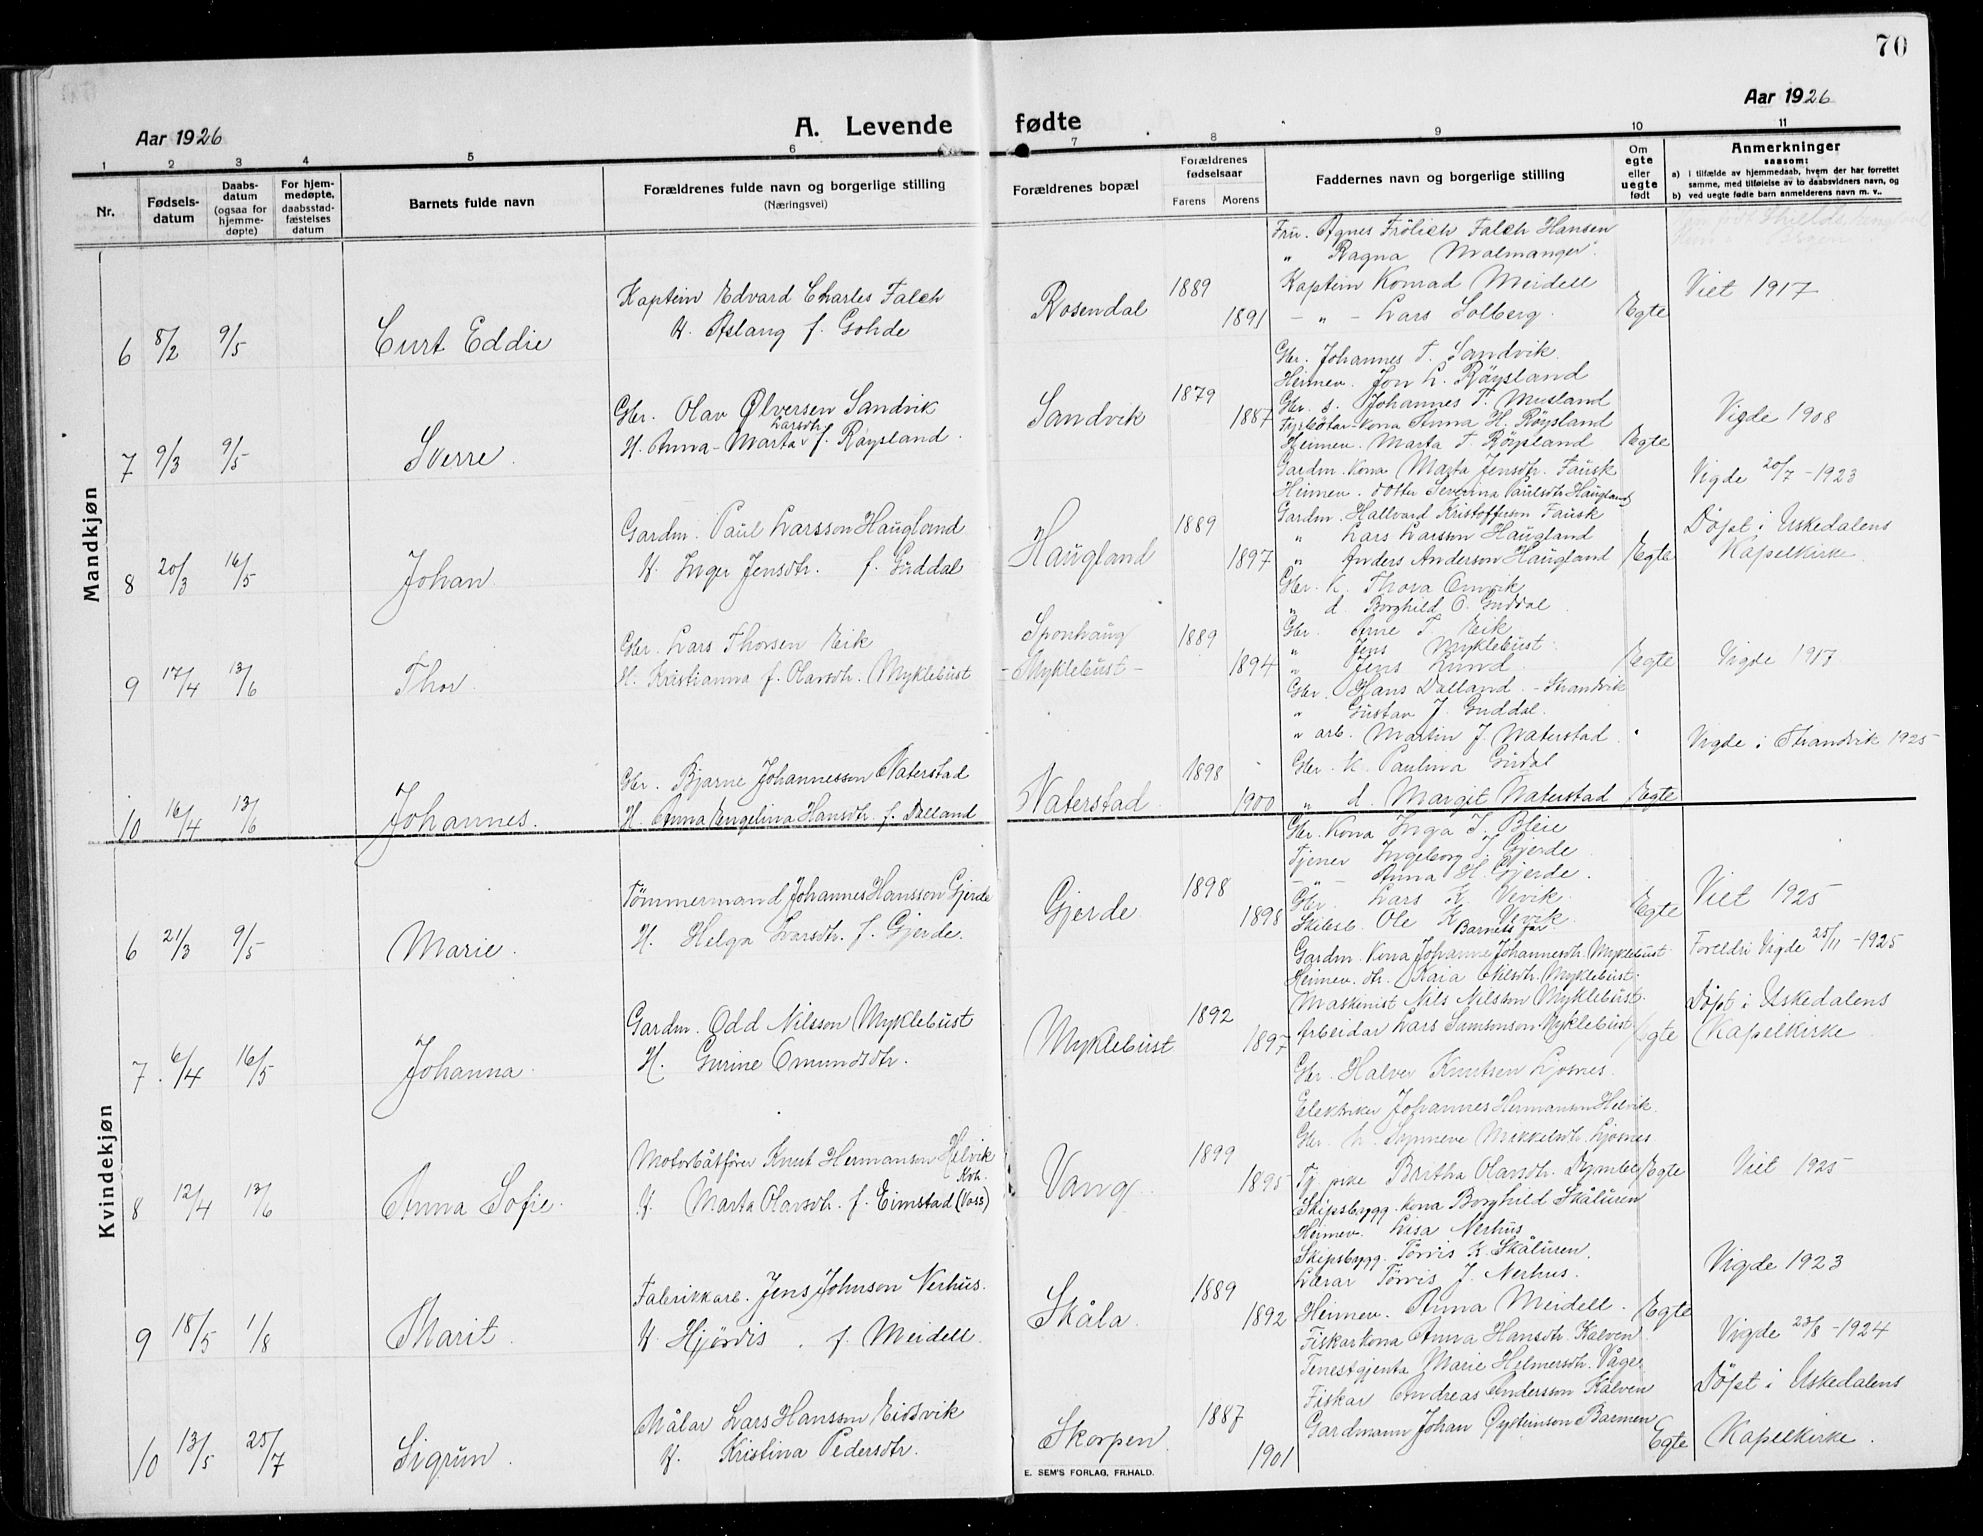 70
Aar 1926
A. Levende fødte
Aar 1926
1 2 3 4 5 6 7 8 9 10 11
Nr.
Fødsels-
datum
Daabs-
datum
(ogsaa for
hjemme-
døpte)
For hjem-
medøpte,
daabsstad-
fæstelses
datum
Barnets fulde navn
Forældrenes fulde navn og borgerlige stilling
(Næringsvei)
Forældrenes bopæl
Forældrenes
fødselsaar
Farens Morens
Faddernes navn og borgerlige stilling
Om
egte
eller
uegte
født
Anmerkninger
saasom:
a) i tilfælde av hjemmedaab, hvem der har forrettet
samme, med tilføielse av to daabsvidners navn, og
b) ved uegte fødte barn anmelderens navn m. v..
Mandkjøn
6 8/2 9/5 Curt Eddie
Kaptein Edvard Charles Falch
H. Aslaug f. Gohde
Rosendal 1889 1891
Fru. Agnes Frölich Falch Hansen
" Ragna Malmanger
Kaptein Konrad Meidell
- " - Lars Solberg.
Egte
Viet 1917
7 9/3 9/5 Sverre.
Gbr. Olav Ølversen Sandvik
H. Anna-Marta Larsdtr. f. Røysland.
Sandvik 1879 1887
Gbr. Johannes T. Sandvik.
Heimev. Jon L. Röysland
Gbr. s. Johannes T. Musland
Fyrbötar kona Anna H. Röysland
Heimev. Marta T. Röysland
Egte
Vigde 1908
8 20/3 16/5 Johan
Gardm. Paul Larsson Haugland
H. Inger Jensdtr. f. Guddal
Haugland 1889 1897
Gardm. kona Marta Jensdtr. Fausk
Heimev. dotter Severina Paulsdtr Haugland
Gardm. Hallvard Kristoffersen Fausk
" Lars Larsson Haugland
" Anders Anderson Haugland
Egte
Vigde 20/7 - 1923
Döpt i Uskedalens
Kapelkirke
9 17/4 13/6 Thor
Gbr. Lars Thorsen Eik
H. Kristianna f. Olavsdtr. Myklebust
Sponhaug
- Myklebust - 1889 1894
Gbr. K. Thora Omvik
" d. Borghild O. Guddal
Gbr. Arne T. Eik
" Jens Myklebust
" Jens Lund
Egte
Vigde 1917
10 16/4 13/6 Johannes.
Gbr. Bjarne Johannessen Naterstad
H. Anna Engelina Hansdtr. f. Dalland
Naterstad 1898 1900
Gbr. Hans Dalland - Strandvik
" Gustav J. Guddal.
" arb. Martin J. Naterstad
Gbr. K. Paulina Gudal
" d. Margit Naterstad
Egte
Vigde i Strandvik 1925
Kvindekjøn
6 21/3 9/5 Marie.
Tømmermand Johannes Hansson Gjerde
H. Helga Larsdtr. f. Gjerde.
Gjerde 1898 1898
Gbr. Kona Inga J. Bleie
Tjener Ingeborg J. Gjerde
- " - Anna H. Gjerde.
Gbr. Lars K. Vevik.
Skibsb. Ole K. Vevik.
Barnets far
Egte
Viet 1925
7. 6/4 16/5 Johanna.
Gardm. Odd Nilsson Myklebust
H. Gurine Omundsdtr.
Myklebust 1892 1897
Gardm. Kona Johanne Johannesdtr. Myklebust
Heimev. dtr. Kaia Nilsdtr. Myklebust.
Maskenist Nils Nilsson Myklebust.
Arbeidar Lars Samsonson Myklebust
Egte
Foreldri Vigde 25/11 - 1925
Döpt i Uskedalens
Kapelkirke
8 12/4 13/6 Anna Sofie.
Motorbåtfører Knut Hermansen Helvik
Kvh.
H. Marta Olavsdtr. f. Eimstad (Voss)
Vang. 1899 1895
Gbr. Halvor Knutsen Ljosnes.
Elektriker Johannes Hermansen Helvik.
Gbr. h. Synneve Mikkelsdtr. Ljosnes
Tj. pike Bertha Olavsdtr.
Egte
Viet 1925
9 18/5 1/8 Marit.
Fabrikkarb. Jens Johnson Nerhus.
H Hjördis. f. Meidell.
Skåla. 1889 1892
Skipsbygg. kona Borghild Skåluren
Heimev. Lisa Nerhus
Skipsbygg. Torvis K. Skåluren.
Lærar Torvis J. Nerhus.
Heimev. Anna Meidell.
Egte
Vigde 1923
10 13/5 25/7 Sigrun.
Målar Lars Hansson Eidsvik
H. Kristina Pedersdtr.
Skorpen. 1887 1901
Fiskarkona Anna Hansdtr. Kalven
Tenestgjenta Marie Helmersdtr. Våge
Fiskar Andreas Andersson Kalven
Gardmann Johan Øysteinson Barmen
Egte
Vigde 23/8 - 1924
Döpt i Uskedalens
Kapelkirke.
E. SEM'S FORLAG, FR.HALD.